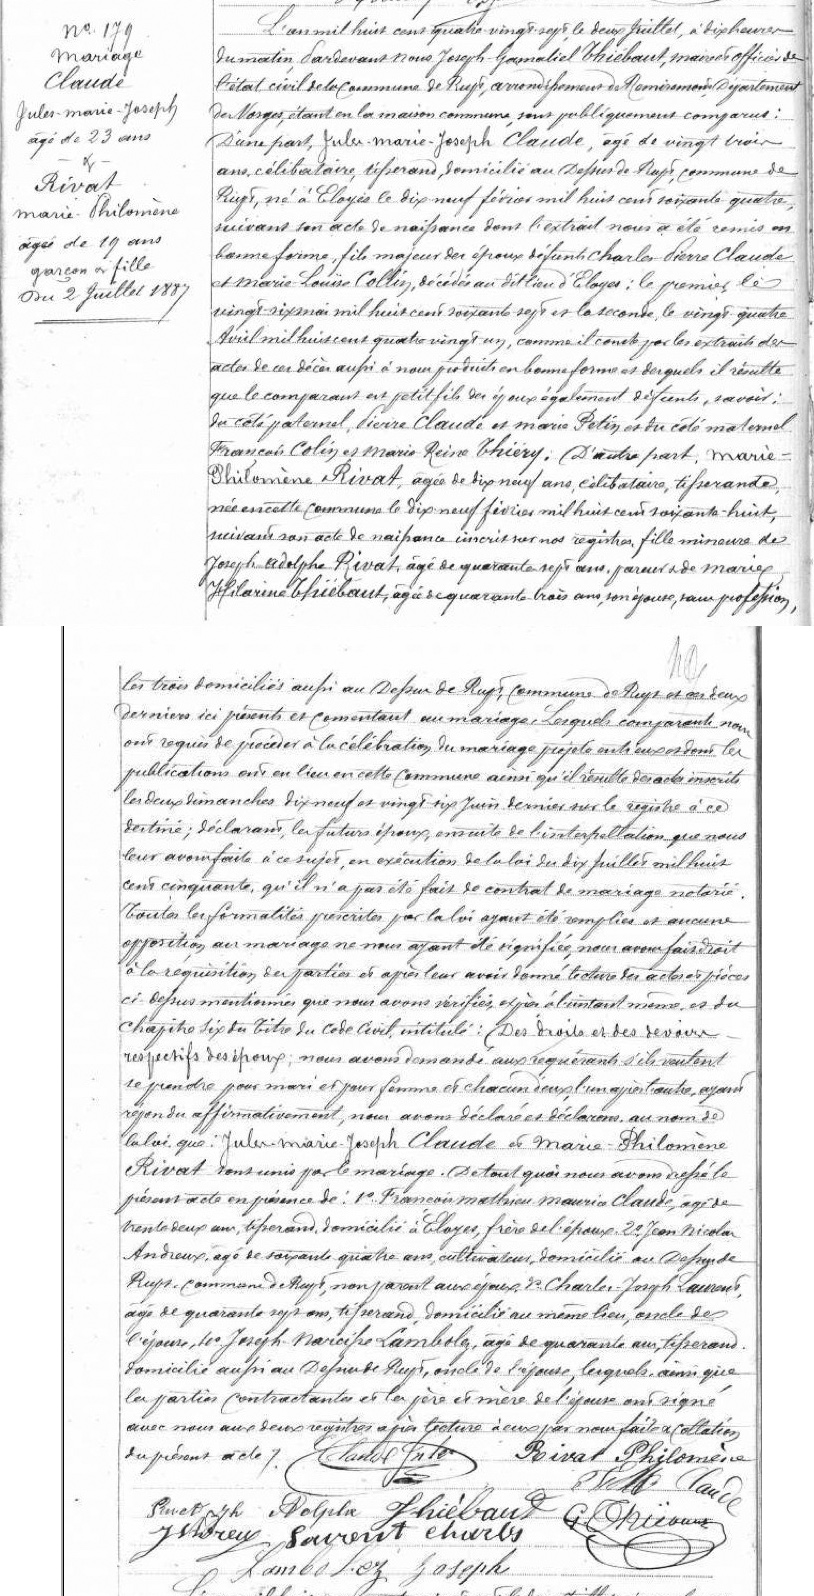 No. 179
Mariage
Claude
Jules-marie-Joseph
âgé de 23 ans
&
Rivat
marie-Philomène
âgée de 19 ans
garçon & fille
Du 2 Juillet 1887
L'an mil huit cent quatre-vingt-sept le deux Juillet, à dix heures
du matin, Pardevant nous Joseph-Gamaliel Thiébaut, maire et officier de
l'état civil de la commune de Rupt, arrondissement de Remiremont, Département
des Vosges, étant en la maison commune, sont publiquement comparus :
D'une part, Jules-marie-Joseph Claude, âgé de vingt trois
ans, célibataire, tisserand, domicilié au Dessus de Rupt, commune de
Rupt, né à Eloyes le dix-neuf février mil huit cent soixante quatre,
suivant son acte de naissance dont l'extrait nous a été remis en
bonne forme, fils majeur des époux défunts Charles-Pierre Claude
et marie Louise Collin, décédés au dit lieu d'Eloyes ; le premier le
vingt-six mai mil huit cent soixante-sept et la seconde, le vingt-quatre
Avril mil huit cent quatre vingt un, comme il conste par les extraits des
actes de ces décès aussi à nous produits en bonne forme et desquels il résulte
que le comparant est petit fils des époux également défunts, savoir :
du côté paternel, Pierre Claude et marie Petin et du côté maternel
François Colin et Marie Reine Thiéry. D'autre part, marie-
Philomène Rivat, âgée de dix neuf ans, célibataire, tisserande,
née en cette commune le dix-neuf février mil huit cent soixante-huit,
suivant son acte de naissance inscrit sur nos registres, fille mineure de
Joseph Adolphe Rivat, âgé de quarante sept ans, pareur & de marie
Hilarine Thiébaut, âgée de quarante trois ans, son épouse, sans profession,
les trois domiciliés aussi au Dessus de Rupt, commune de Rupt et ces deux
derniers ici présents et consentant au mariage. Lesquels comparants nous
ont requis de procéder à la célébration du mariage projeté entre eux et dont les
publications ont eu lieu en cette commune ainsi qu'il résulte des actes inscrits
les deux dimanches dix neuf et vingt-six Juin dernier sur le registre à ce
destiné ; déclarant, les futurs époux, ensuite de l'interpellation que nous
leur avons faite à ce sujet, en exécution de la loi du dix Juillet mil huit
cent cinquante, qu'il n'a pas été fait de contrat de mariage notarié.
Toutes les formalités prescrites par la loi ayant été remplies et aucune
opposition au mariage ne nous ayant été signifiée, nous avons fait droit
à la réquisition des parties et après leur avoir donné lecture des actes et pièces
ci-dessus mentionnés que nous avons vérifiés à l'instant même, et du
chapitre six du Titre du Code Civil, intitulé : Des droits et des devoirs
respectifs des époux, nous avons demandé aux requérants s'ils veulent
se prendre pour mari et pour femme et chacun d'eux, l'un après l'autre, ayant
répondu affirmativement, nous avons déclaré et déclarons au nom de
la loi, que : Jules-marie-Joseph Claude et marie-Philomène
Rivat sont unis par le mariage. De tout quoi nous avons dressé le
présent acte en présence de : 1o François mathieu maurice Claude, âgé de
trente deux ans, tisserand, domicilié à Éloyes, frère de l'époux. 2o Jean Nicolas
Andreux, âgé de soixante quatre ans, cultivateur, domicilié au Dessus de
Rupt, commune de Rupt, non parent aux époux, 3o Charles-Joseph Laurent,
âgé de quarante sept ans, tisserand, domicilié au même lieu, oncle de
l'épouse, 4o Joseph Narcisse Lambolez, âgé de quarante ans, tisserand,
domicilié aussi au Dessus de Rupt, oncle de l'épouse, lesquels, ainsi que
les parties contractantes et les père et mère de l'épouse ont signé
avec nous aux deux registres après lecture à eux par nous faite & collation
du présent acte /.
Claude Jules Rivat Philomène
Claude
Rivat Jh Adolphe Thiébaut G. Thiébaut
Laurent Charles
Lambolez Joseph